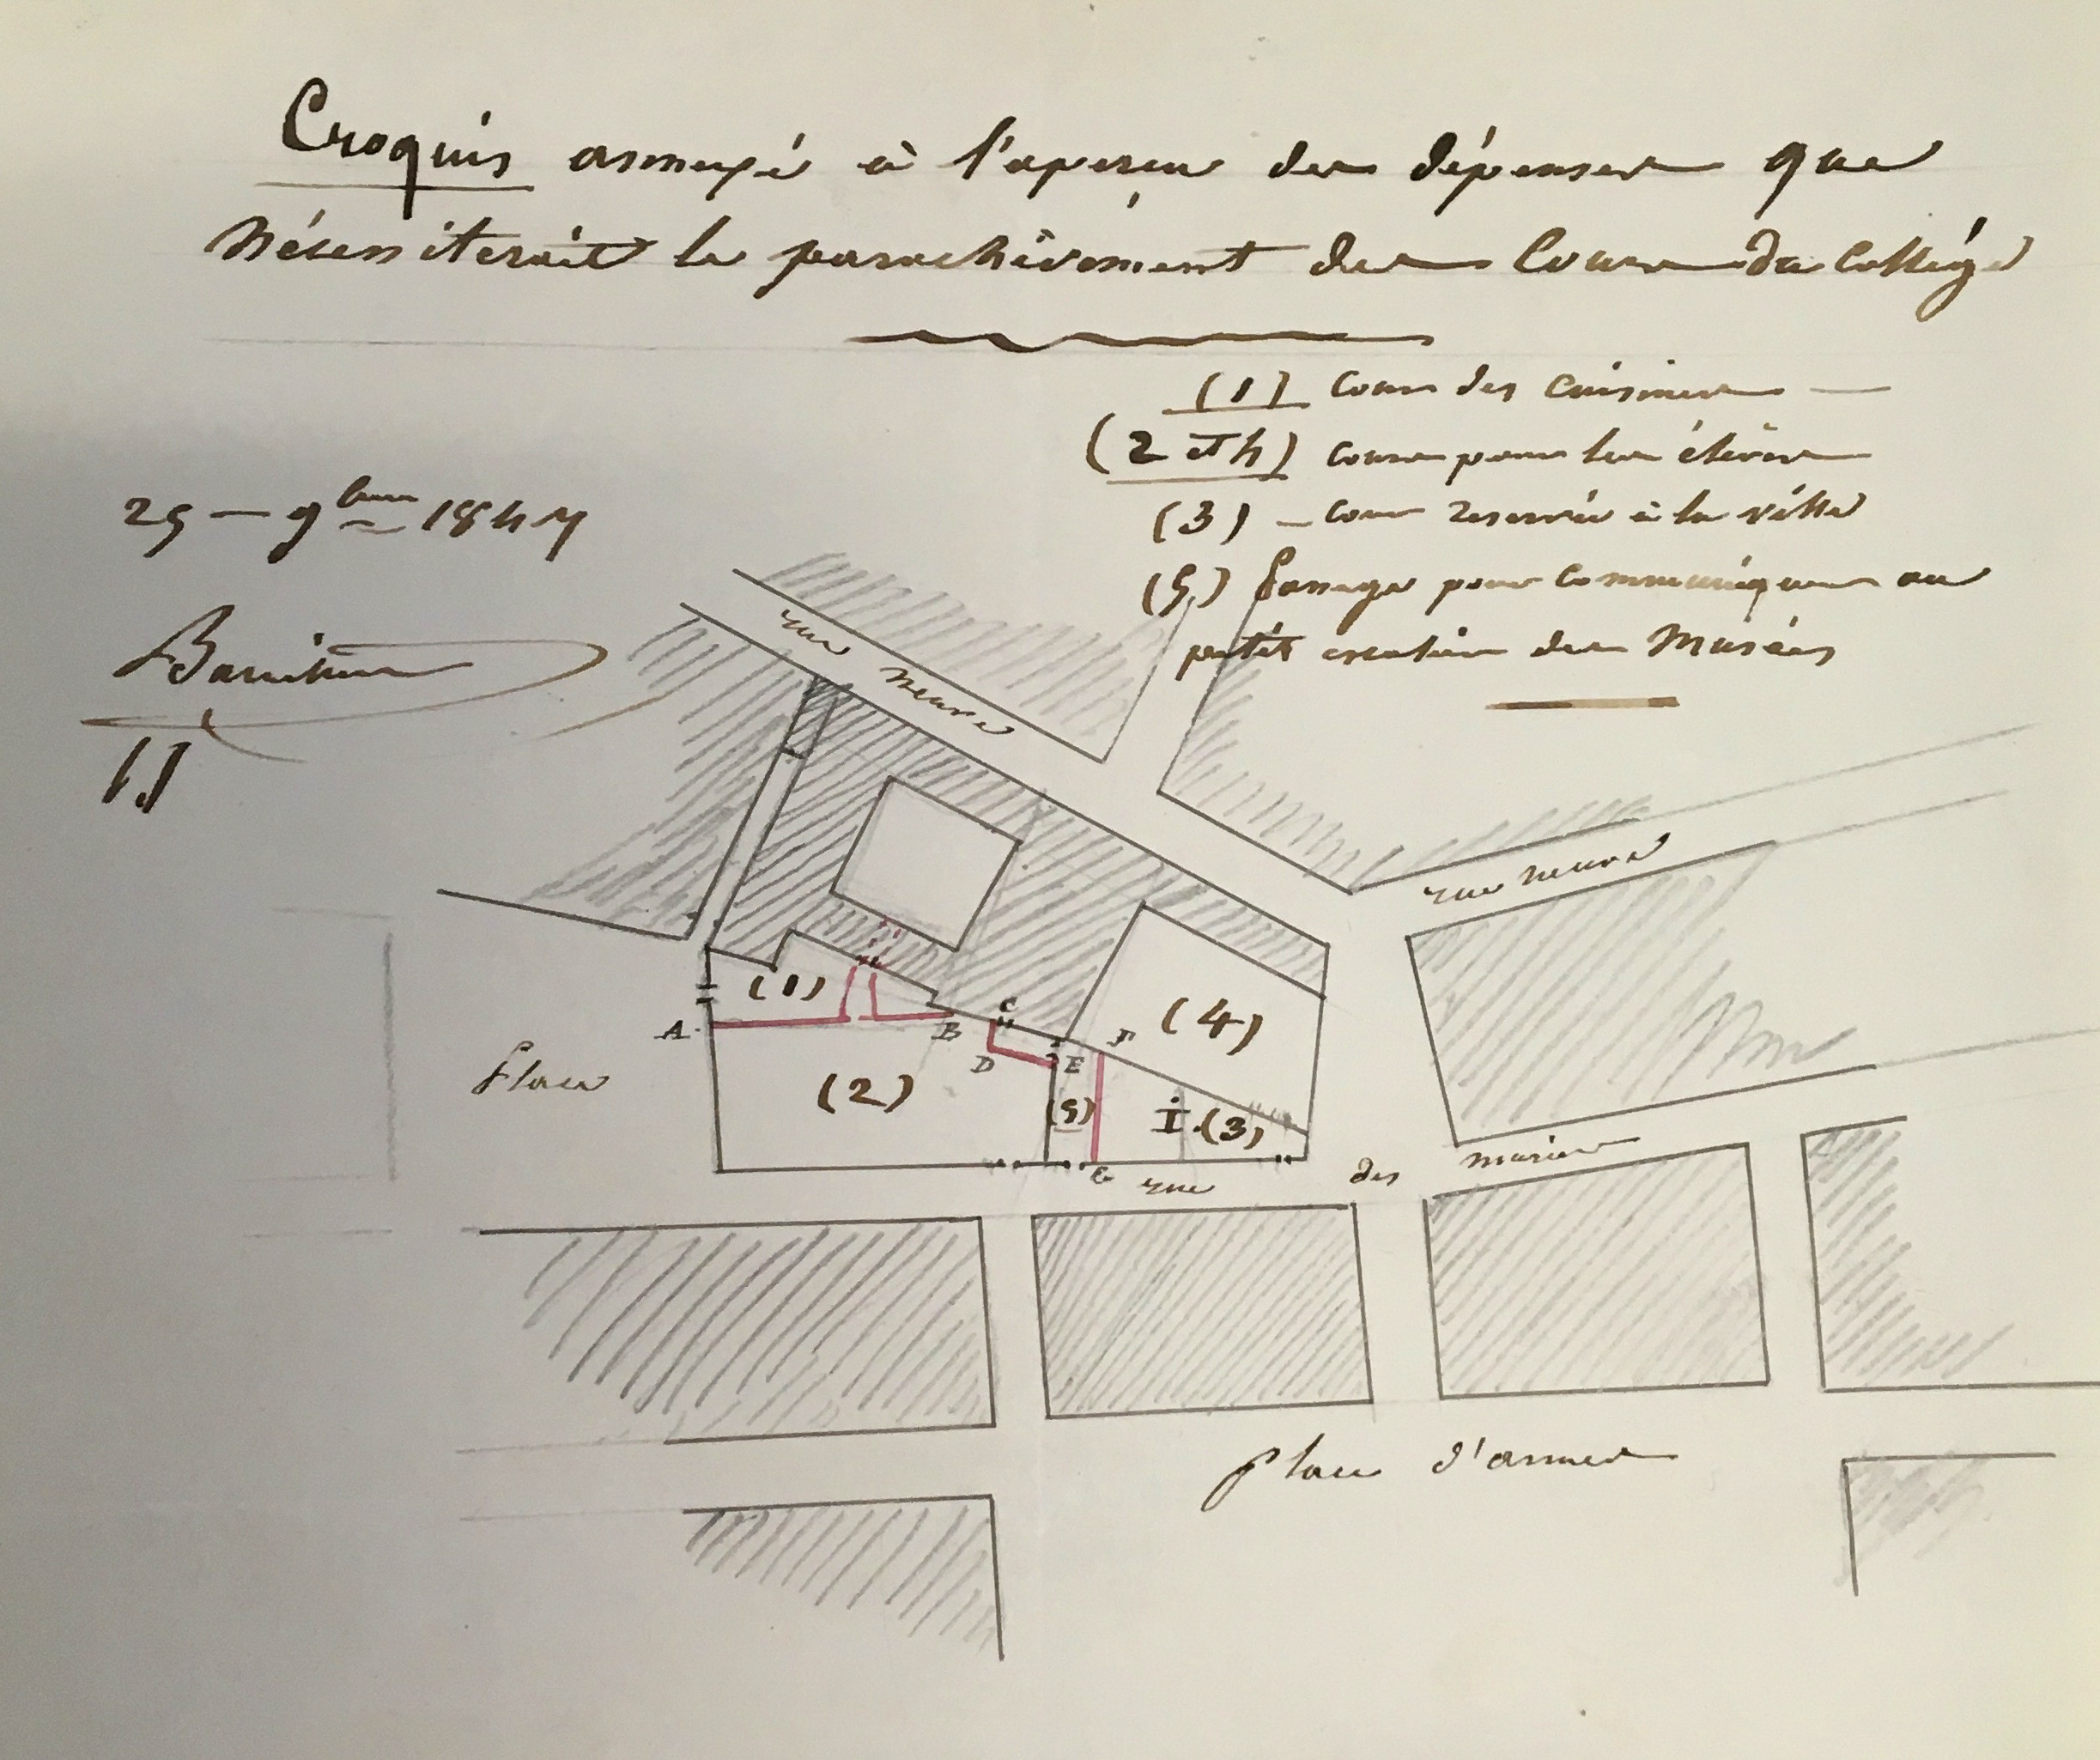 Croquis annexé à l'aperçu des dépenses que
Nécessiterait le parachèvement des Cours du Collége
(1) Cour des Cuisines —
(2 et 4) cours pour les élèves
(3) — cour reservée à la ville
(5) Passage pour Communiquer au
petit escalier des Musées
25 — 9bre 1847
rue neuve
rue neuve
(1)
A
B
C
D
E
F
(4)
Place
(2)
(5)
I
(3)
G
rue des musées
place d'armes